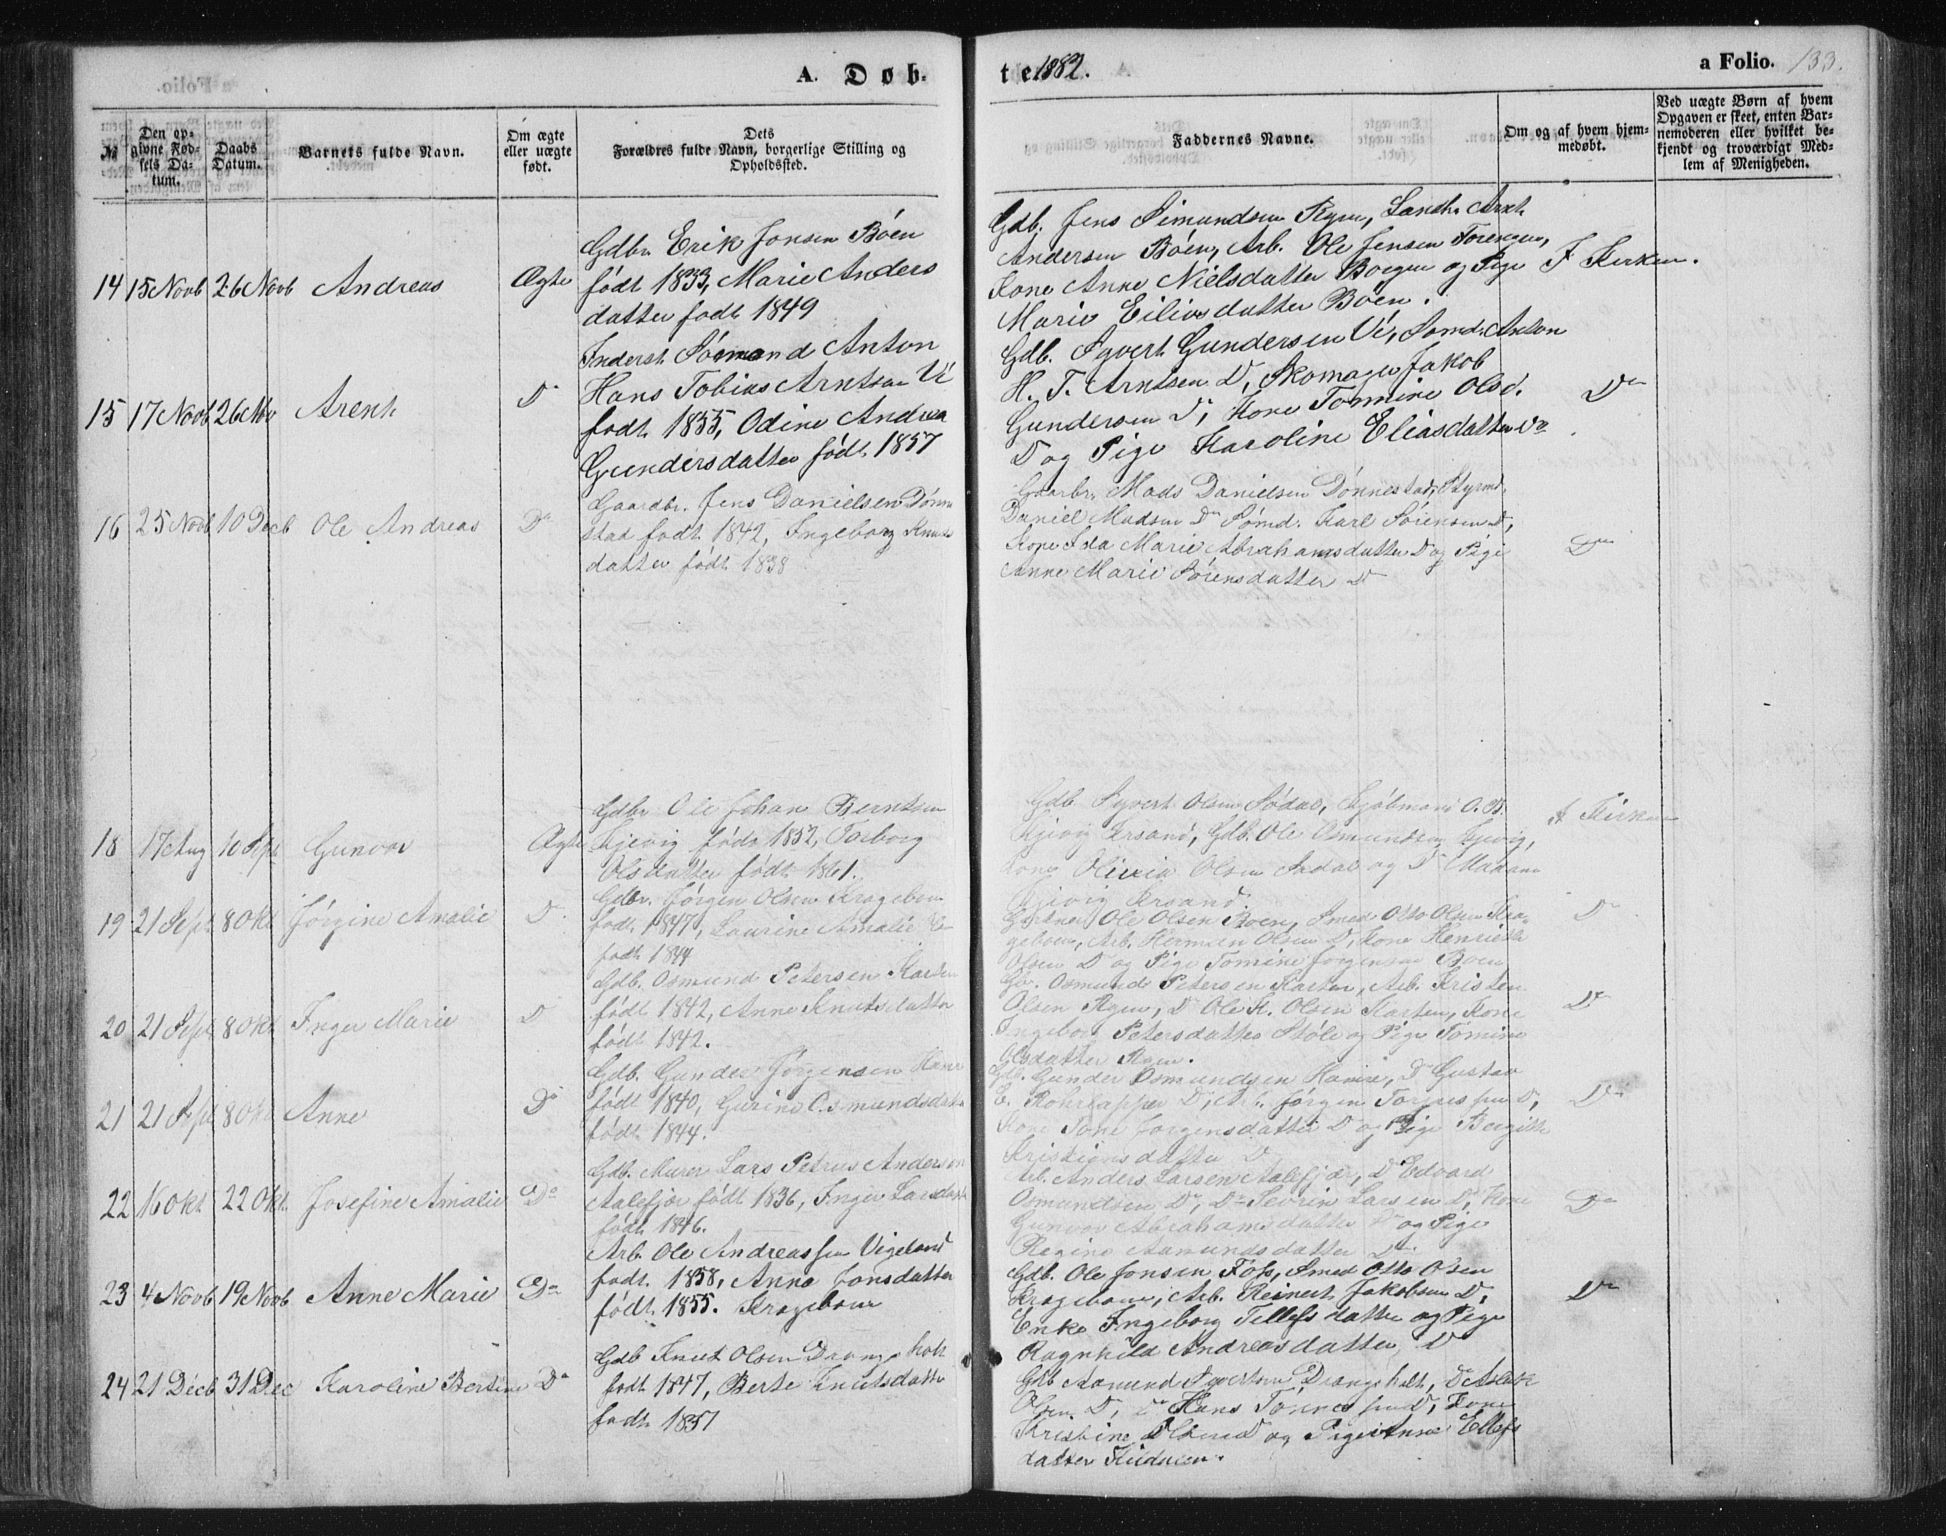 A. Døb-
te 1882.
a Folio. 133.
№
Den op-
givne Fød-
sels Da-
tum.
Daabs
Datum.
Barnets fulde Navn.
Om ægte
eller uægte
født.
Dets
Forældres fulde Navn, borgerlige Stilling og
Opholdssted.
Faddernes Navne.
Om og af hvem hjem-
medøbt.
Ved uægte Børn af hvem
Opgaven er skeet, enten Bar-
nemoderen eller hvilket be-
kjendt og troværdigt Med-
lem af Menigheden.
14 15 Novb 26 Novb Andreas Ægte
Gdbr Erik Jonsen Bóen
født 1833, Marie Anders
datter født 1849
Gdb. Jens Simundsen Ryen,
Andersen Bóen, Arb. Ole Jensen
Kone Anne Nielsdatter Boegen og Pige
Marie Eilivsdatter Bóen.
I Kirken.
15 17 Novb 26 Nov Arent D
Inderst Sómand Anton
Hans Tobias Arntsen Vé
født 1855, Odine Andrea
Gundersdatter født 1857
Gdb. Syvert Gundersen Vé, Somd. Anton
H. T. Arntsen D, Skomager Jakob
Gundersen D, Kone Tomine Olsd.
D og Pige Karoline Eliasdatter Do
Do
16 25 Novb 10 Decb Ole Andreas Do
Gaardbr. Jens Danielsen Dónne
stad født 1842, Ingeborg Knuds
datter født 1838
Gaarbr. Mads Danielsen Dónnestad, Styrmd.
Daniel Madsen Do Sómd. Karl Sórensen D,
Kone Ida Marie Abrahamsdatter D og Pige
Anne Marie Sórensdatter D
Do
18 17 Aug 10 Sept Gunvor Ægte
Gdbr Ole Johan Berntsen
Kjevig født 1852, Torborg
Olsdatter født 1861.
Gdb Syvert Olsen Sódal, O. B.
Kjevig Krsand, Gdb. Ole Osmundsen Kjevig,
Kone Olivia Olsen Sodal og D
Kjevig Krsand.
I Kirken
19 21 Sept 8 Okt Jórgine Amalie D
Gdbr. Jórgen Olsen Krageboen
født 1847, Laurine Amalie
født 1844
Gartner Ole Olsen Boen, Smed Otto Olsen Kra-
geboen, Arb. Herman Olsen D, Kone Henriette
Olsen D og Pige Tomine Jorgensen Boen
D
20 21 Sept 8 Okt Inger Marie D
Gdb. Osmund Petersen Karten
født 1842, Anne Knutsdatter
født 1842.
Gb. Osmund Petersen Karten, Arb. Kristen
Olsen Ryen, D Ole K. Olsen Karten, Kone
Ingeborg Petersdatter Stóle og Pige Tomine
Olsdatter Ryen.
D
21 21 Sept 8 Okt Anne Do
Gdb. Gunder Jórgensen Hamre
født 1840, Gurine Osmundsdatter
født 1844.
Gdb. Gunder Osmundsen Hamre, D Gustav
E. D, Arb. Jórgen D,
Kone Tone Jorgensdatter D og Pige Bergitte
Kristiansdatter D
Do
22 16 Okt 22 Okt. Josefine Amalie Do
Gdb. Murer Lars Petrus Andersen
Aalefjær født 1836, Inger Larsdatter
født 1846.
Arb. Anders Larsen Aalefjær, D Edvard
Osmundsen D, Do Severin Larsen D, Kone
Gunvor Abrahamsdatter D og Pige
Regine Aanundsdatter D.
Do
23 4 Novb 19 Novb Anne Marie Do
Arb. Ole Andreassen Vigeland
født 1858, Anne Jonsdatter
født 1855. Krageboen
Gdb. Ole Jonsen Foss, Smed Otto Olsen
Krageboen, Arb. Reinert Jakobsen D,
Enke Ingeborg Tellefsdatter og Pige
Ragnhild Andreasdatter D
Do
24 21 Decb 31 Dec Karoline Bertine Do
Gdb Knut Olsen Drangsholt
født 1847, Berte Knutsdatter
født 1851
Gdb Aanund Syvertsen Drangsholt, D Aslak
Olsen D, D Hans D, Kone
Kristine Olsen D og Pige Anne Ellefs
datter